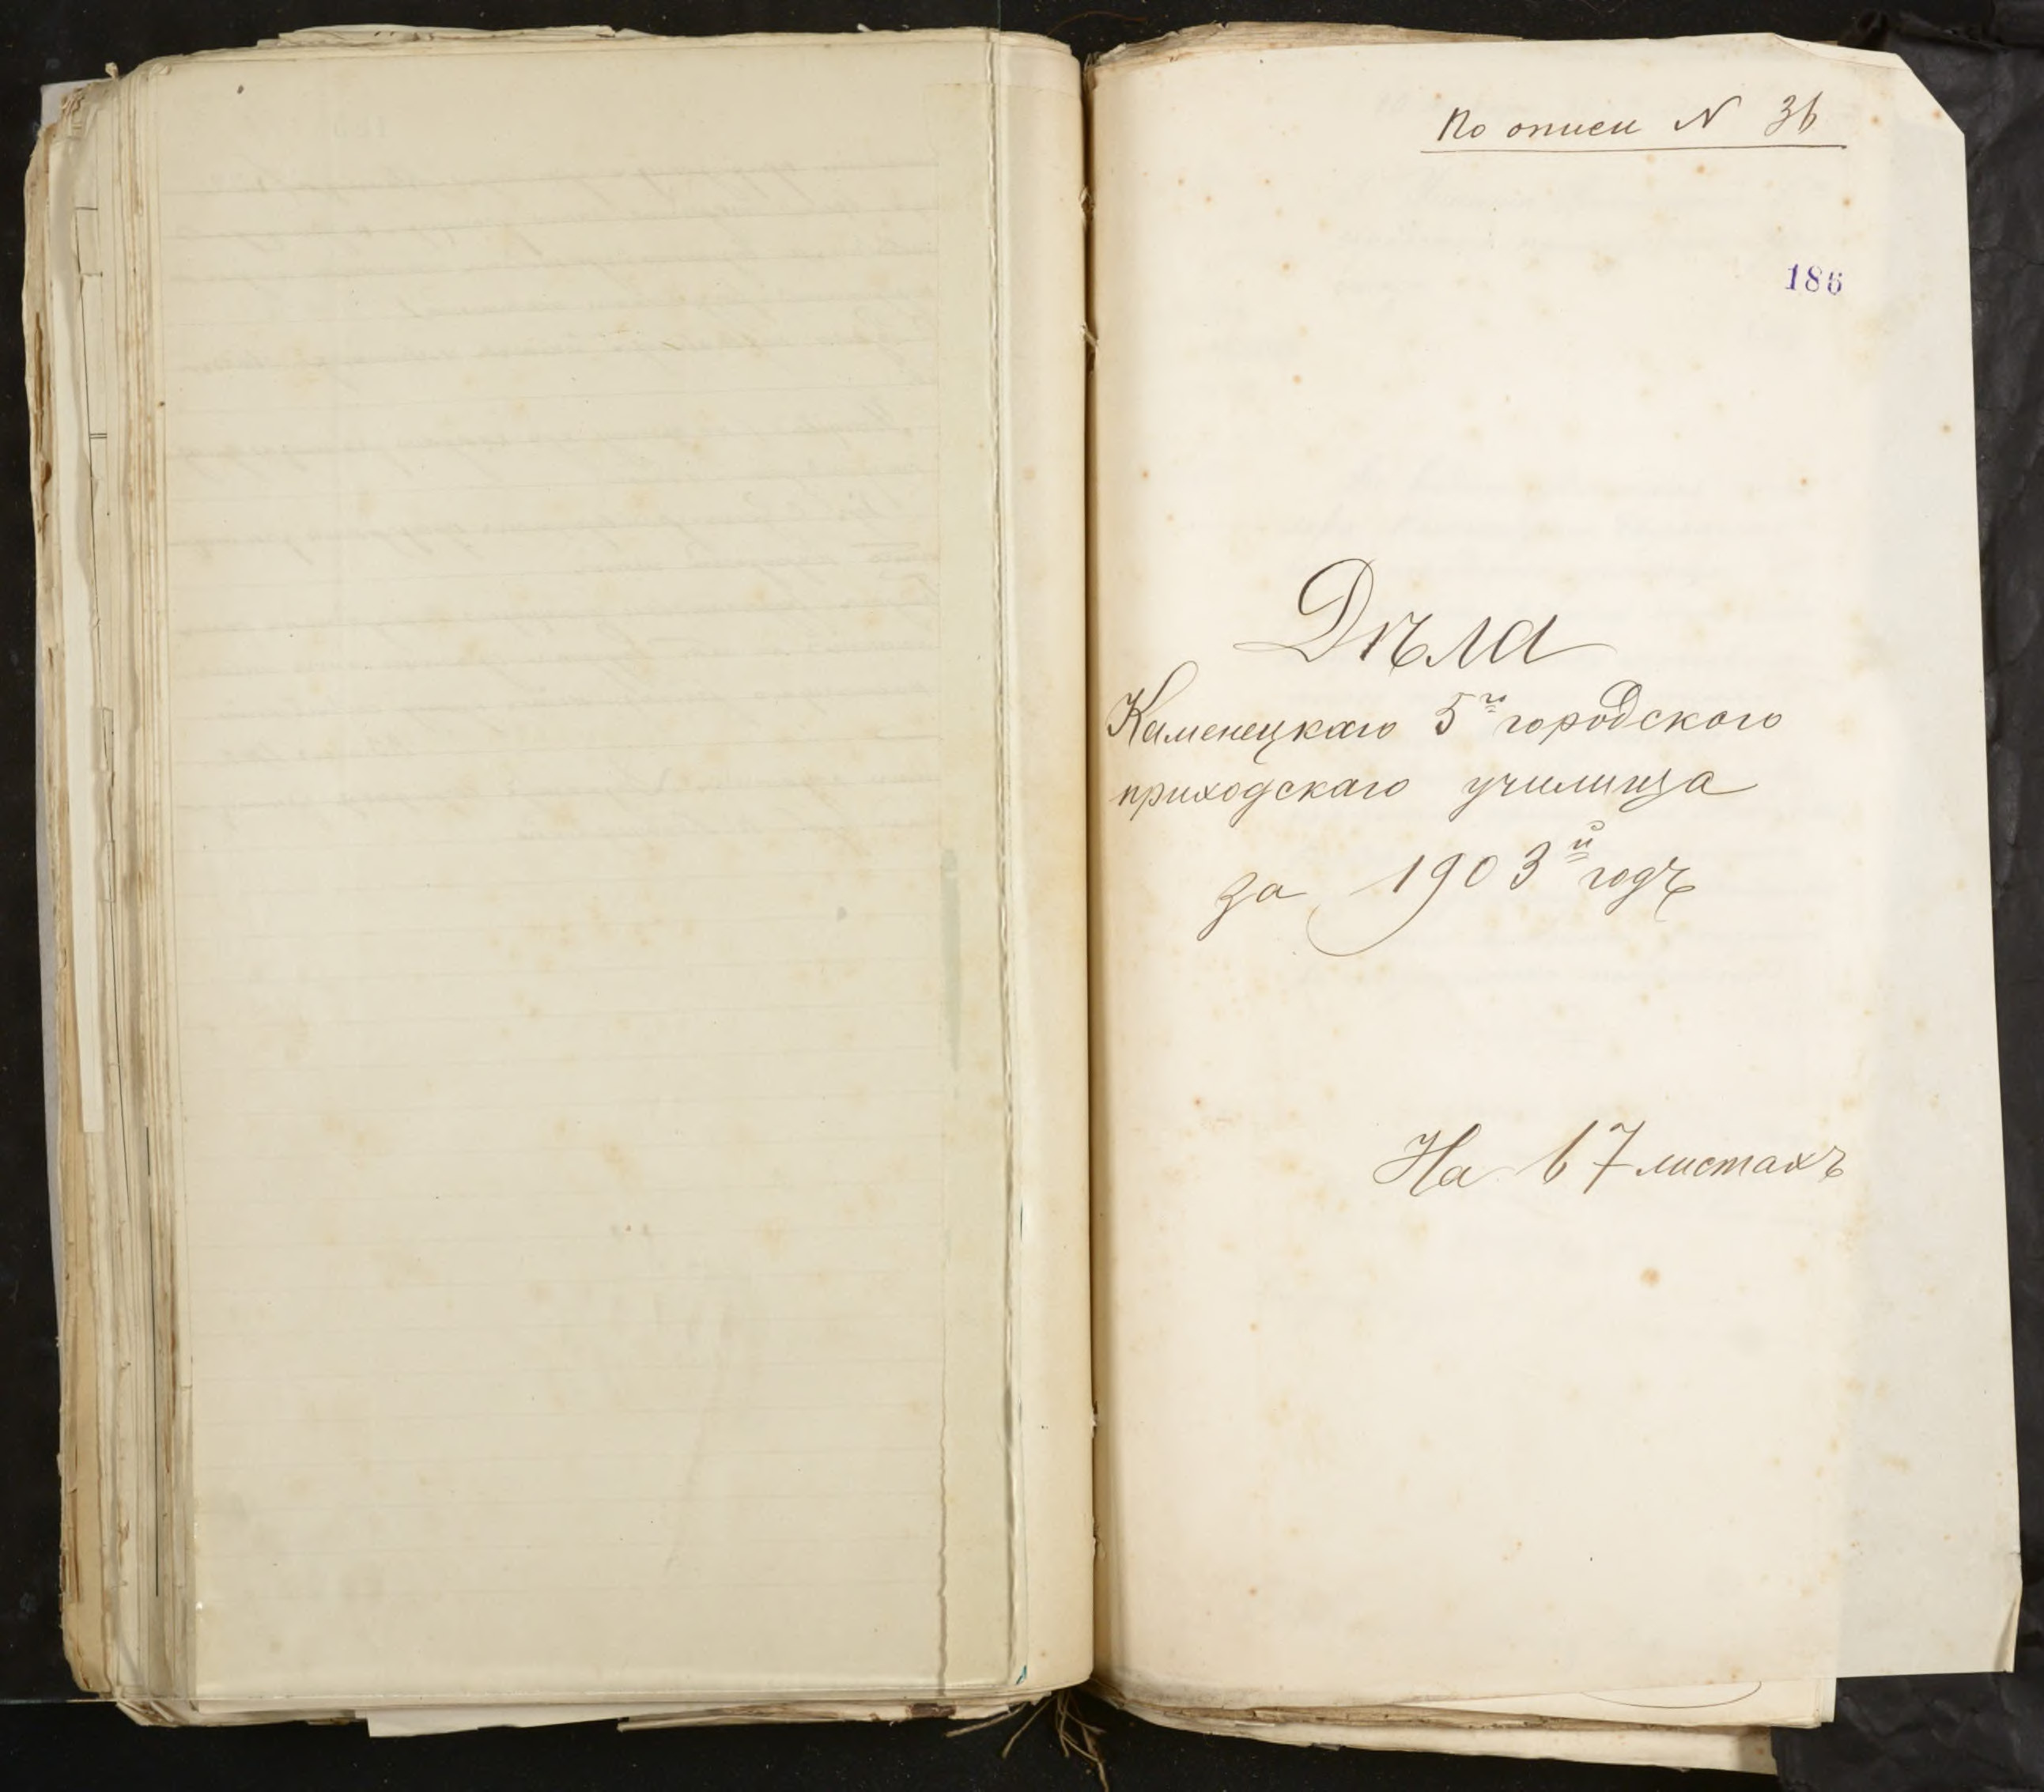 По описи N 36
186
Дѣла
Каменецкаго 5го городского
приходскаго училища
за 1903й годъ
На 67 листахъ